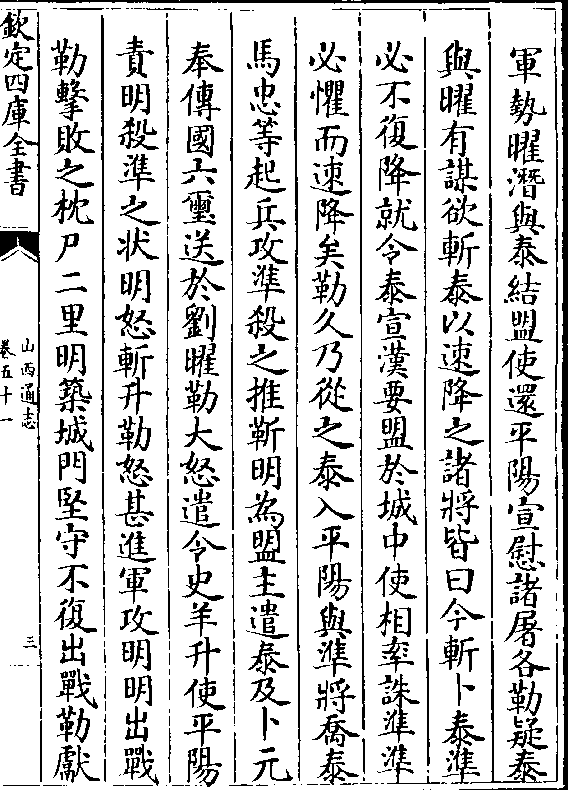 軍勢曜潛與泰結盟使還平陽宣慰諸屠各勒疑泰
與曜有謀欲斬泰以速降之諸將皆曰今斬卜泰準
必不復降就令泰宣漢要盟於城中使相率誅準準
必懼而速降矣勒久乃從之泰入平陽與準將喬泰
馬忠等起兵攻準殺之推靳明為盟主遣泰及卜元
奉傳國六璽送於劉曜勒大怒遣令史羊升使平陽
責明殺準之狀明怒斬升勒怒甚進軍攻明明出戰
勒擊敗之枕尸二里明築城門堅守不復出戰勒獻
欽定四庫全書
山西通志
卷五十一
三